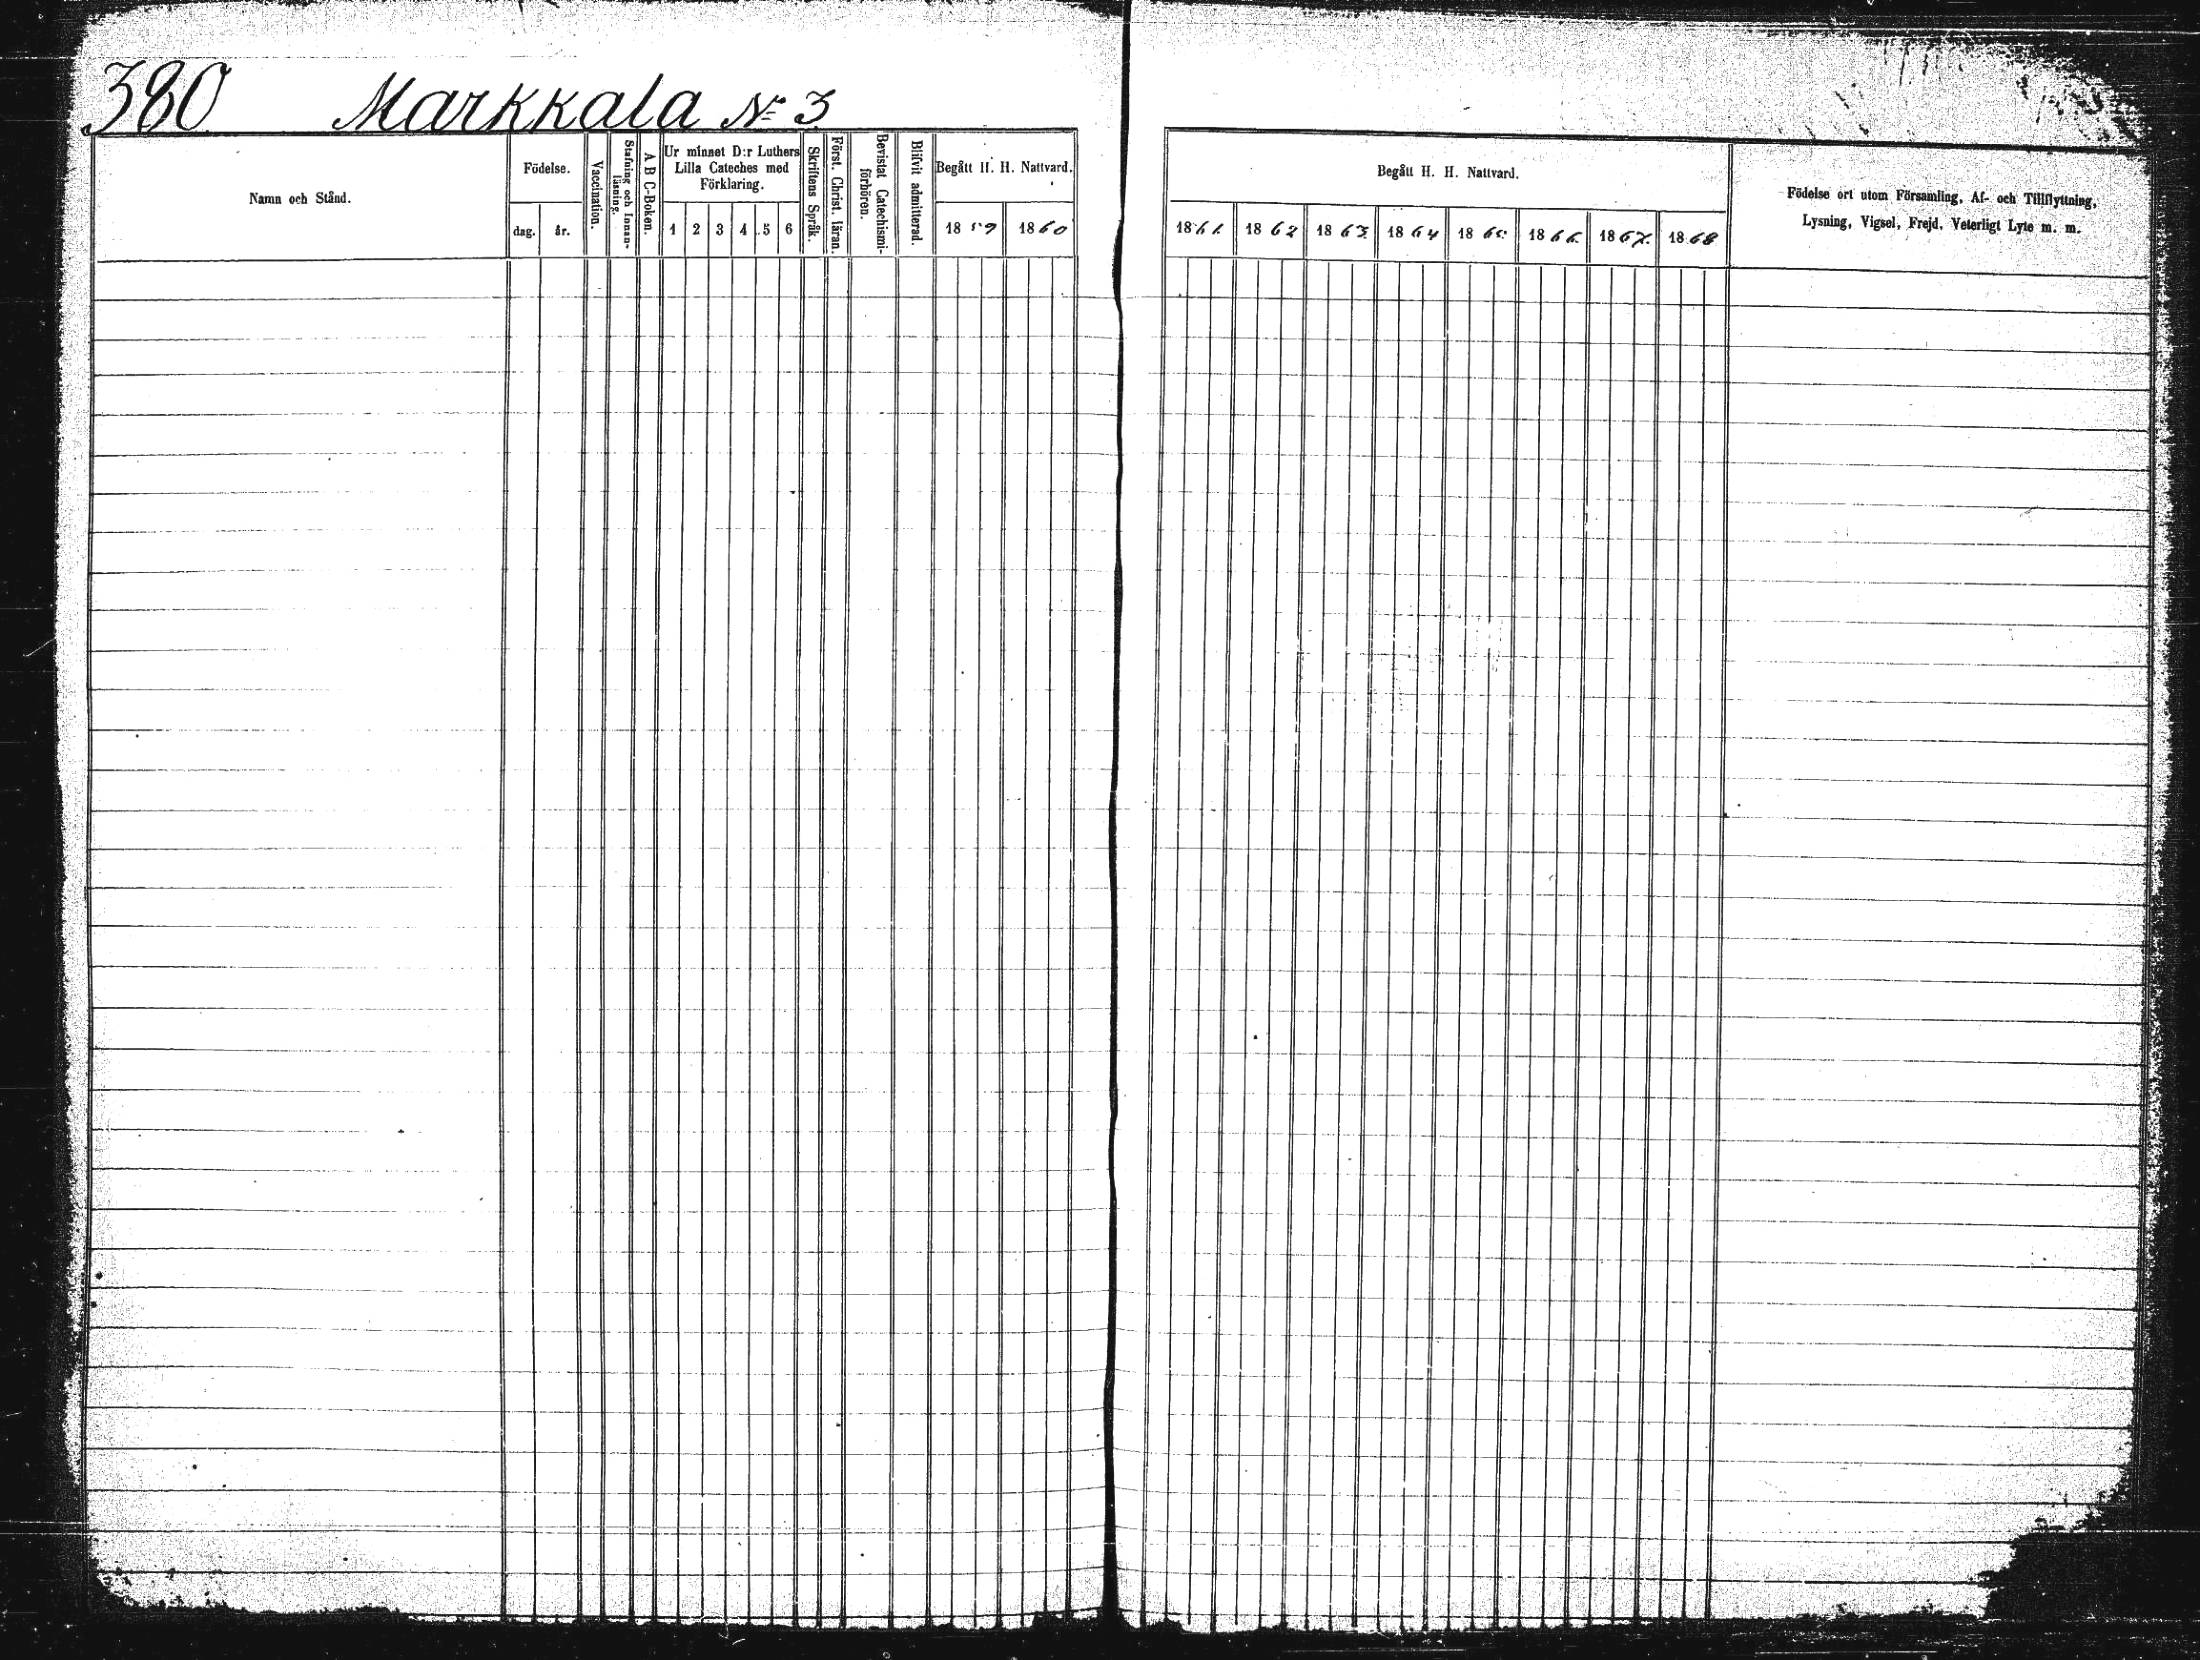 380 Markkala № 3
Namn och Stånd.
Födelse.
dag.
år.
Vaccination.
Stafning och Innan-
läsning.
A B C-Boken.
Ur minnet D:r Luthers
Lilla Cateches med
Förklaring.
1 2 3 4 5 6
Skriftens Språk.
Först. Christ. läran.
Bevistat Catechismi-
förhören.
Blifvit admitterad.
Begått H. H. Nattvard.
1859 1860
Begått H. H. Nattvard.
1861. 1862 1863. 1864 1865. 1866. 1867. 1868
Födelse ort utom Församling, Af- och Tillflyttning,
Lysning, Vigsel, Frejd, Veterligt Lyte m. m.